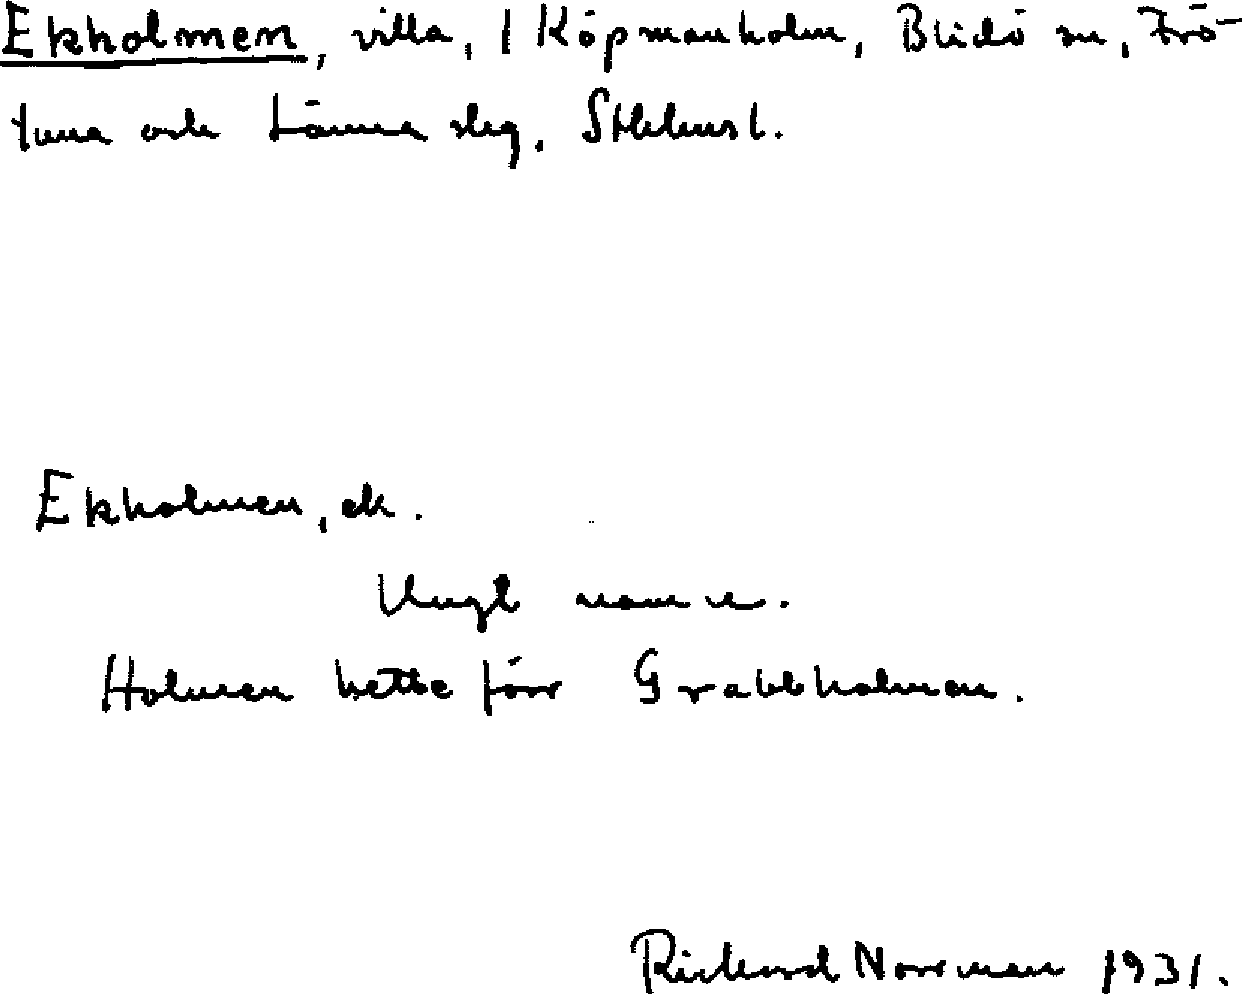 Ekholmen, villa, 1 Köpmanholm, Blidö sn, Frö-
tuna och Länna slg, Sthlms l.
Ekholmen, ek.
Ungt namn.
Holmen hette förr Grabbholmen.
Rickard Norrman 1931.